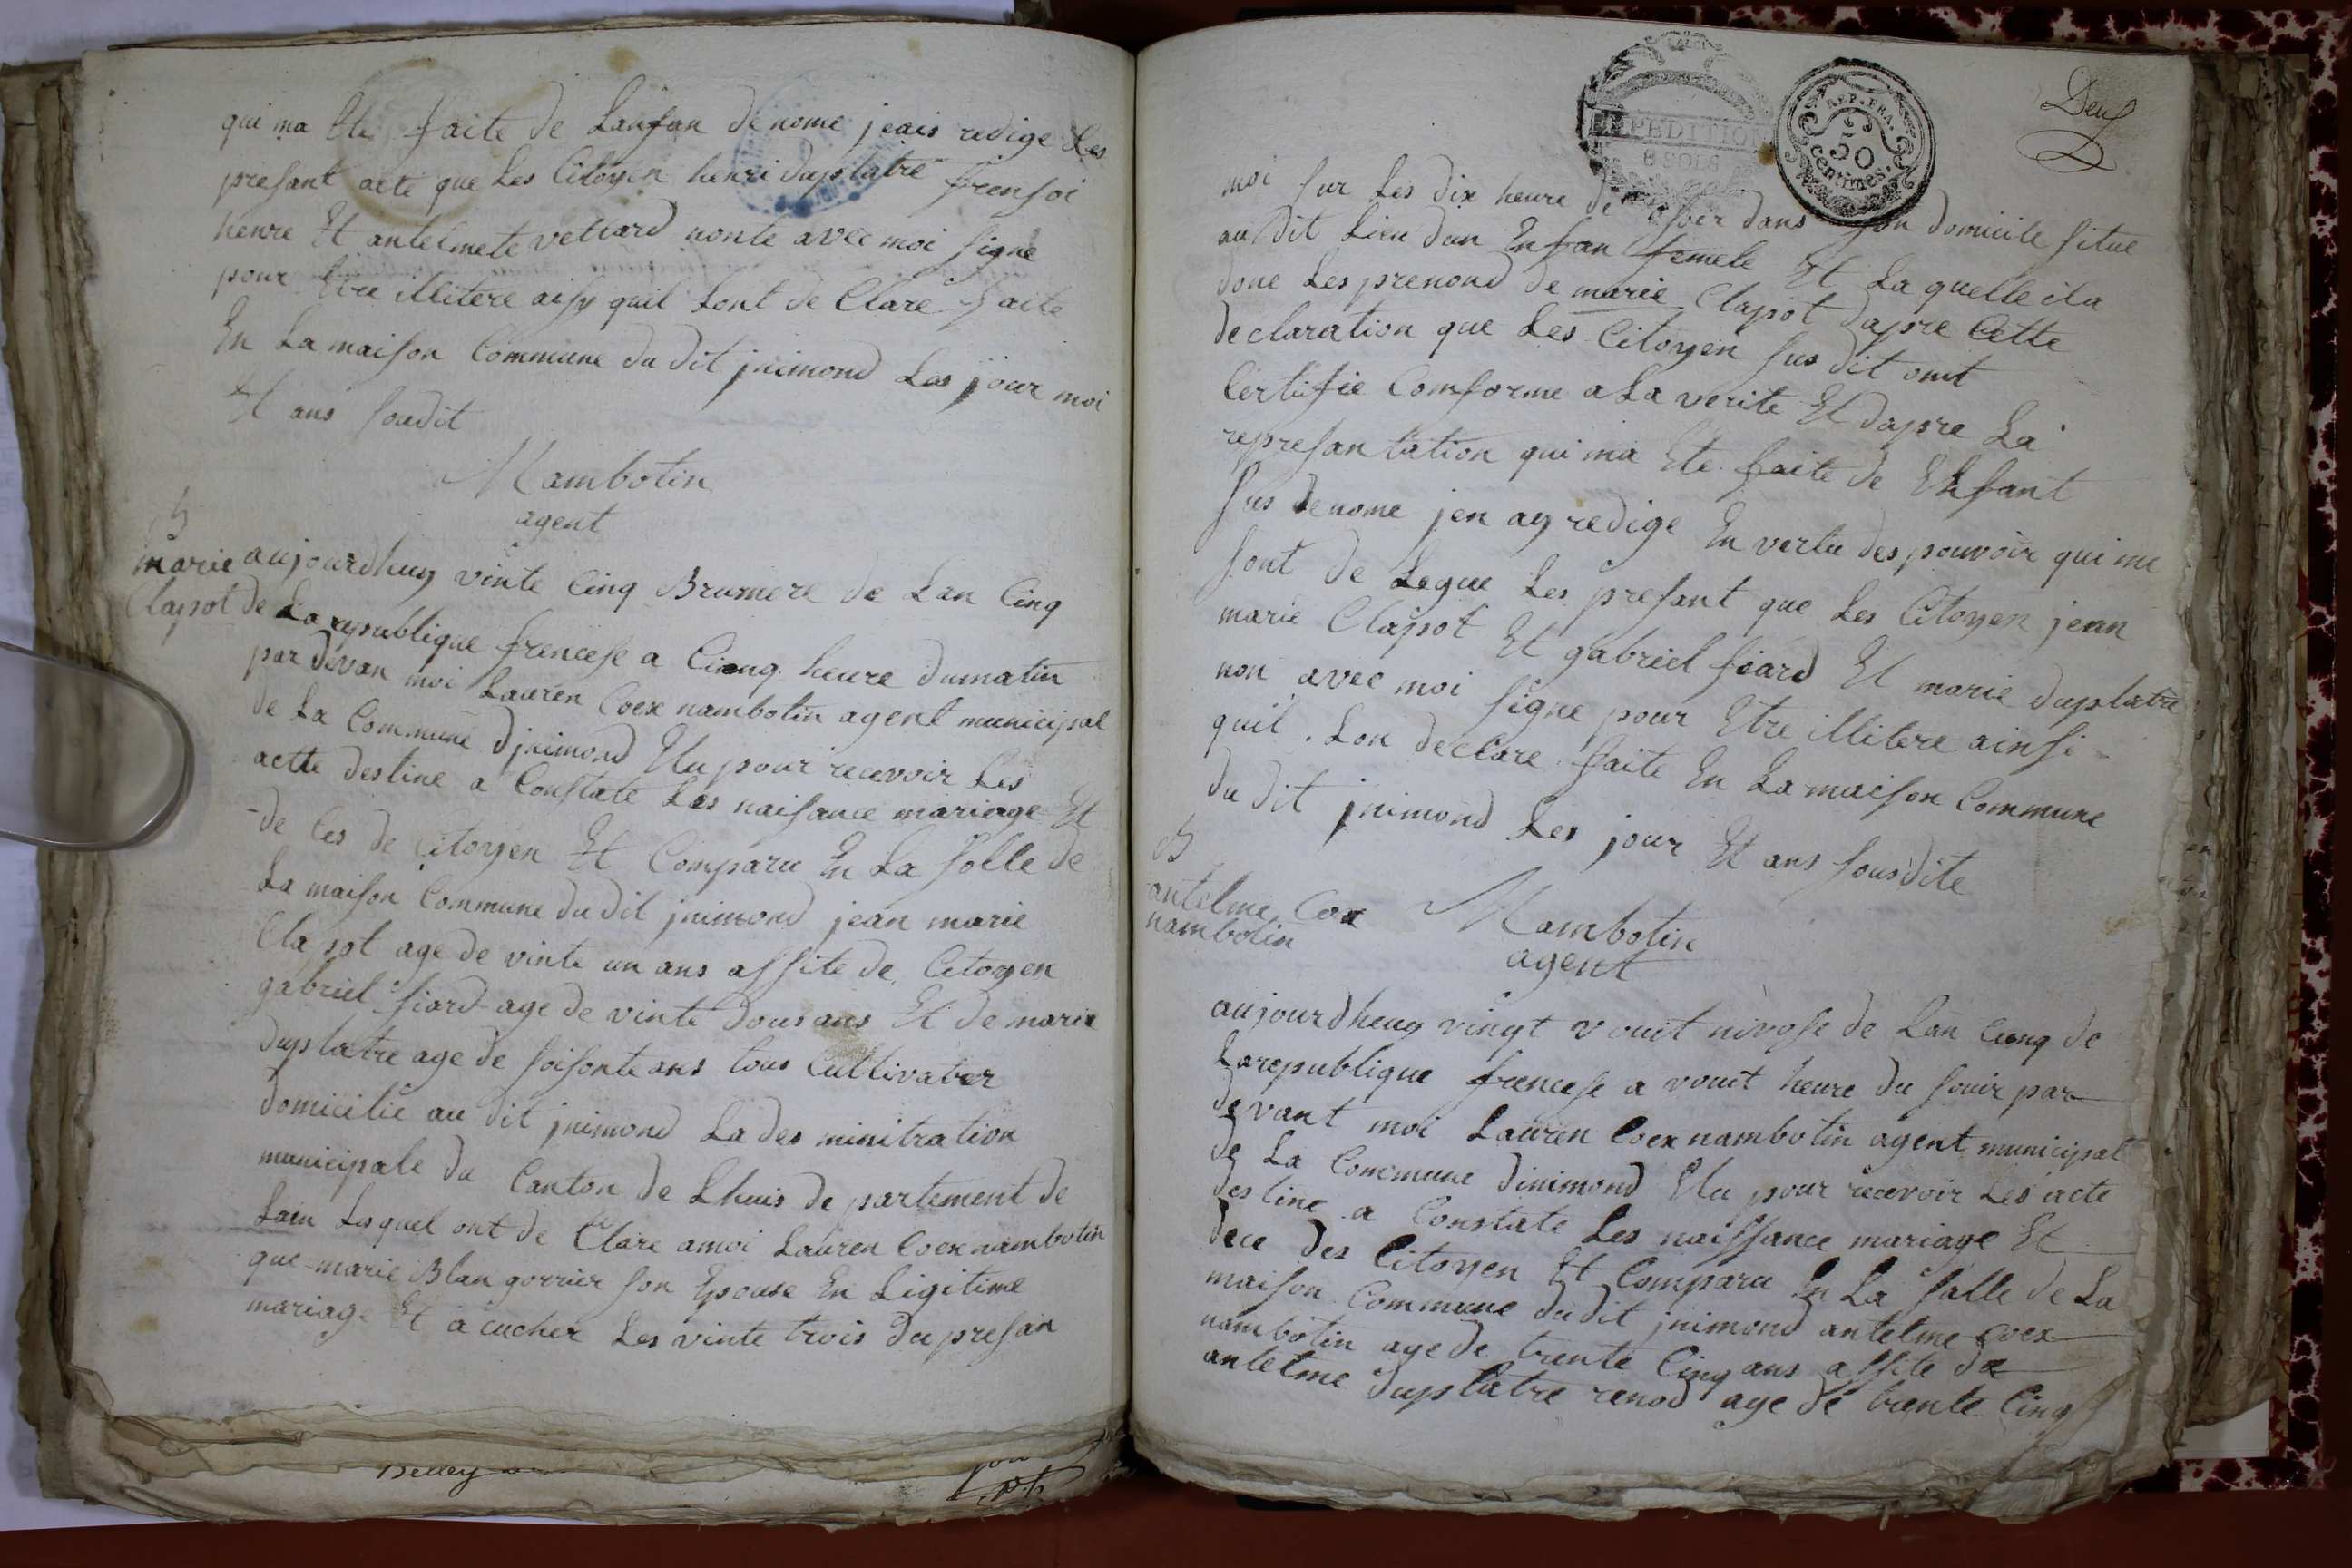 qui ma Ete faite de Lanfan de nome jeais redige Les
presant acte que Les Citoyen henri duplatre frensoi
henre Et antelmete vettard nonte avec moi signe
pour Etre illitere aisy quil Lont de Clare faite
En La maison Commune du dit jnimond Les jour moi
Et ans soudit
Nambotin
agent
marie
Clapot
aujourdhuy vinte Cinq Brumere de Lan Cinq
de La republique francese a Cienq heure dumatin
par devan moi Lauren Coex nambotin agent municipal
de La Commune djnimond Elu pour recevoir Les
actte destine a Constate Les naisance mariage Et
de ces de Citoyen Et Comparu En La solle de
La maison Commune du dit jnimond jean marie
Clapot age de vinte un ans assite de Citoyen
gabriel fiard age de vinte dous ans Et de marie
duplatre age de soisonte ans tous Cultivater
domicilie au dit jnimond La des minitration
municipale du Canton de Lhuis de partement de
Lain Lesquel ont de Clare amoi Lauren Coex nambotin
que marie Blan gorrier son Epouse En Ligitime
mariage Et a cucher Les vinte trois du presan
Belley
EXPEDITION
8 SOLS
REP. FRA.
50
centimes.
Deux
moi sur Les dix heure de soir dans son domicile situe
au dit Lieu dun Enfan femele Et La quelle ila
done Les prenond de marie Clapot dapre Cette
declaration que Les Citoyen sus dit ont
Certifie Comforme a La verite Et dapre La
represantation qui ma Ete faite de Enfant
sus denome jen ay redige En vertu des pouvoir qui me
sont de Legue Les presant que Les Citoyen jean
marie Clapot Et gabriel fiard Et marie duplatre
non avec moi signe pour Etre illitere ainsi
quil Lon declare faite En La maison Commune
du dit jnimond Les jour Et ans sousdite
antelme Cox
nambotin
Nambotin
agent
aujourdheuy vingt vouit nivose de Lan Cienq de
Larepublique francese a vouit heure du souir par
devant moi Lauren Coex nambotin agent municipal
de La Commune dinimond Elu pour recevoir Les acte
destine a Constate Les naissance mariage Et
dece des Citoyen Et Comparu En La salle de La
maison Commune du dit jnimond antelme Coex
nambotin age de trente Cinq ans assite de
antelme duplatre renod age de trente Cinq